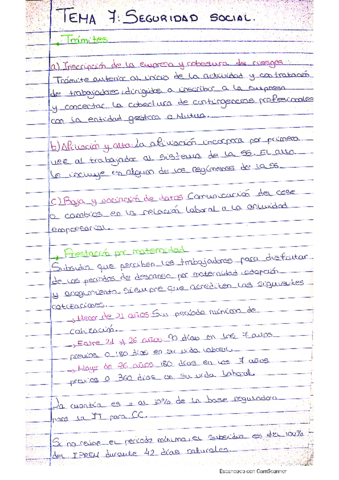 TEMA 7: SEGURIDAD SOCIAL.
- Trámites
a) Inscripción de la empresa y cobertura de riesgos
Trámite anterior al inicio de la actividad y contratación
de trabajadores dirigidos a inscribir a la empresa
y concertar la cobertura de contingencias profesionales
con la entidad gestora o Mutua.
b) Afiliación y alta: la afiliación incorpora por primera
vez al trabajador al sistema de la SS. El alta
lo incluye en alguno de los regímenes de la SS.
c) Baja y variación de datos Comunicación del cese
o cambios en la relación laboral o la actividad
empresarial.
- Prestación por maternidad
Subsidio que perciben los trabajadores para disfrutar
de los periodos de descanso por maternidad adopción
y acogimiento. Siempre que acrediten las siguientes
cotizaciones.
- Menor de 21 años Sin periodo mínimo de
cotización.
- Entre 21 y 26 años 90 días en los 7 años
previos o 180 días en su vida laboral.
- Mayor de 26 años 180 días en los 7 años
previos o 360 días en su vida laboral.
La cuantía es = al % de la base reguladora
para la IT para CC.
Si no reúne el periodo mínimo, el subsidio es del 100%
del IPREM durante 42 días naturales.
Escaneado con CamScanner